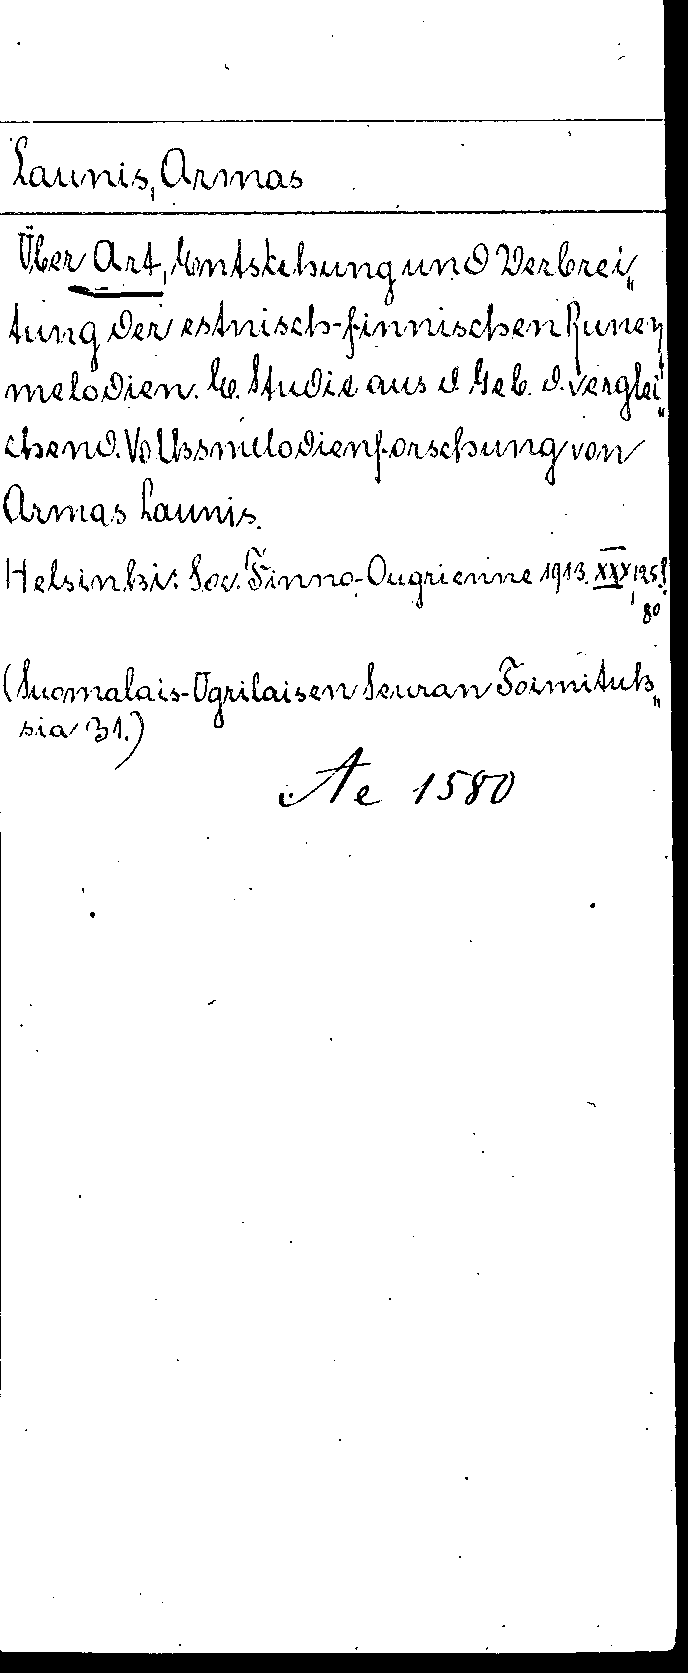 Launis, Armas
Über Art, Entstehung und Verbrei„
tung der estnisch-finnischen Runen„
melodien. E. Studie aus d Geb. d. verglei„
chend. Volksmelodienforschung von
Armas Launis.
Helsinki: Soc. Finno-Ougrienne 1913. XXX,
8°
(Suomalais-Ugrilaisen Seuran Toimituk„
sia 31.)
Ae 1580